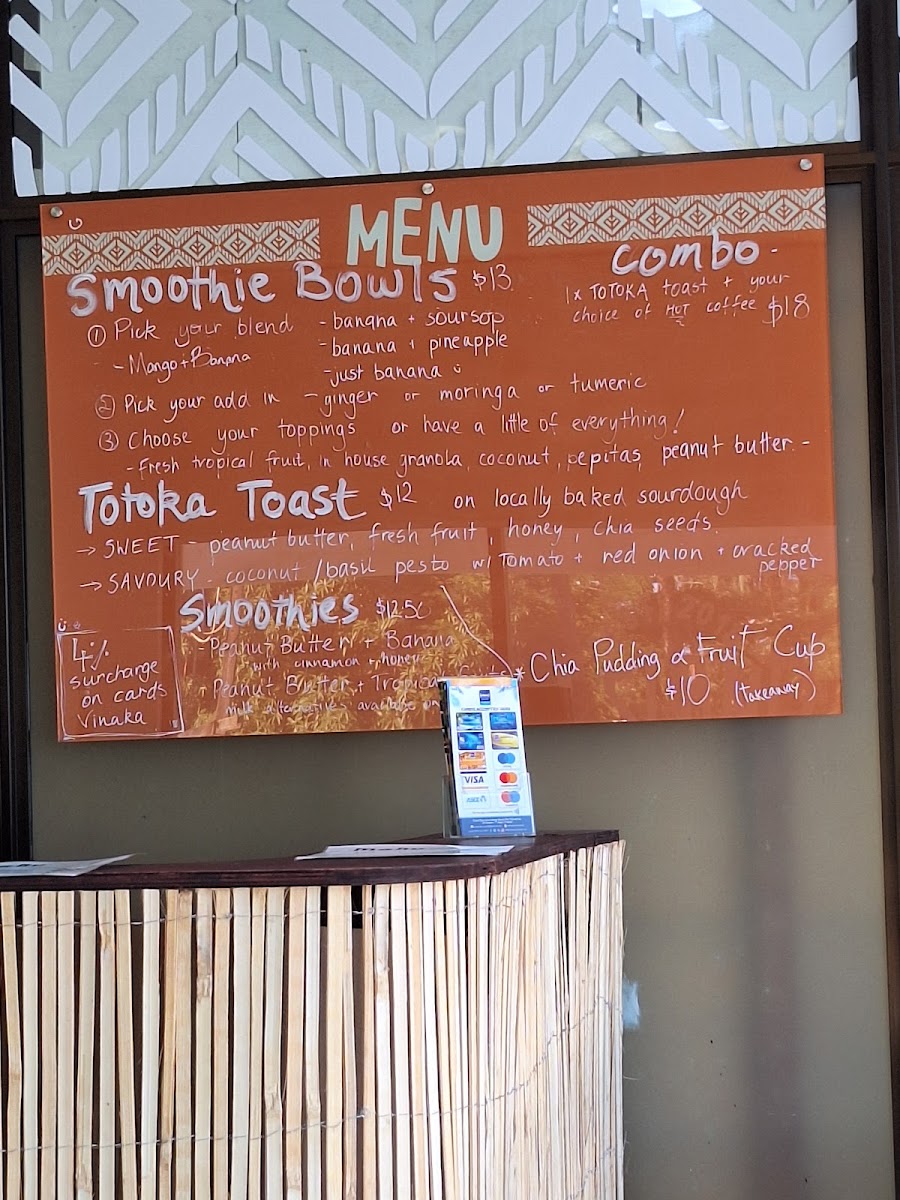 MENU
Smoothie Bowls $13
① Pick your blend
- Mango + Banana
- banana + soursop
- banana + pineapple
- just banana
② Pick your add in - ginger or moringa or tumeric
③ Choose your toppings or have a little of everything!
- Fresh tropical fruit, in house granola, coconut, pepitas, peanut butter -
combo -
1x TOTOKA toast + your
choice of HOT coffee $18
Totoka Toast $12 on locally baked sourdough
→ SWEET - peanut butter, fresh fruit, honey, chia seeds.
→ SAVOURY - coconut / basil pesto w/ Tomato + red onion + cracked
pepper
Smoothies $12.50
- Peanut Butter + Banana
with cinnamon + honey
- Peanut Butter + Tropical
milk alternatives available on
4%
surcharge
on cards
Vinaka
* Chia Pudding & Fruit Cup
$10 (takeaway)
VISA